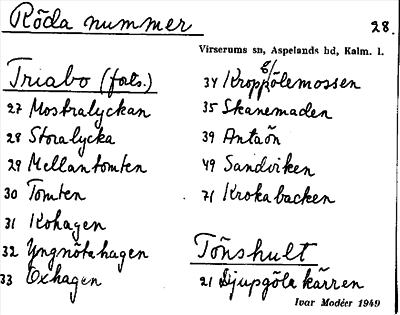 Röda nummer
28.
Virserums sn, Aspelands hd, Kalm. l.
Triabo (forts.)
27 Mostralyckan
28 Storalycka
29 Mellantomten
30 Tomten
31 Kohagen
32 Yngnötahagen
33 Oxhagen
34 Kroppölemossen
35 Skanemaden
39 Antaön
49 Sandviken
71 Krokabacken
Tönshult
21 Djupgölakärren
Ivar Modéer 1949